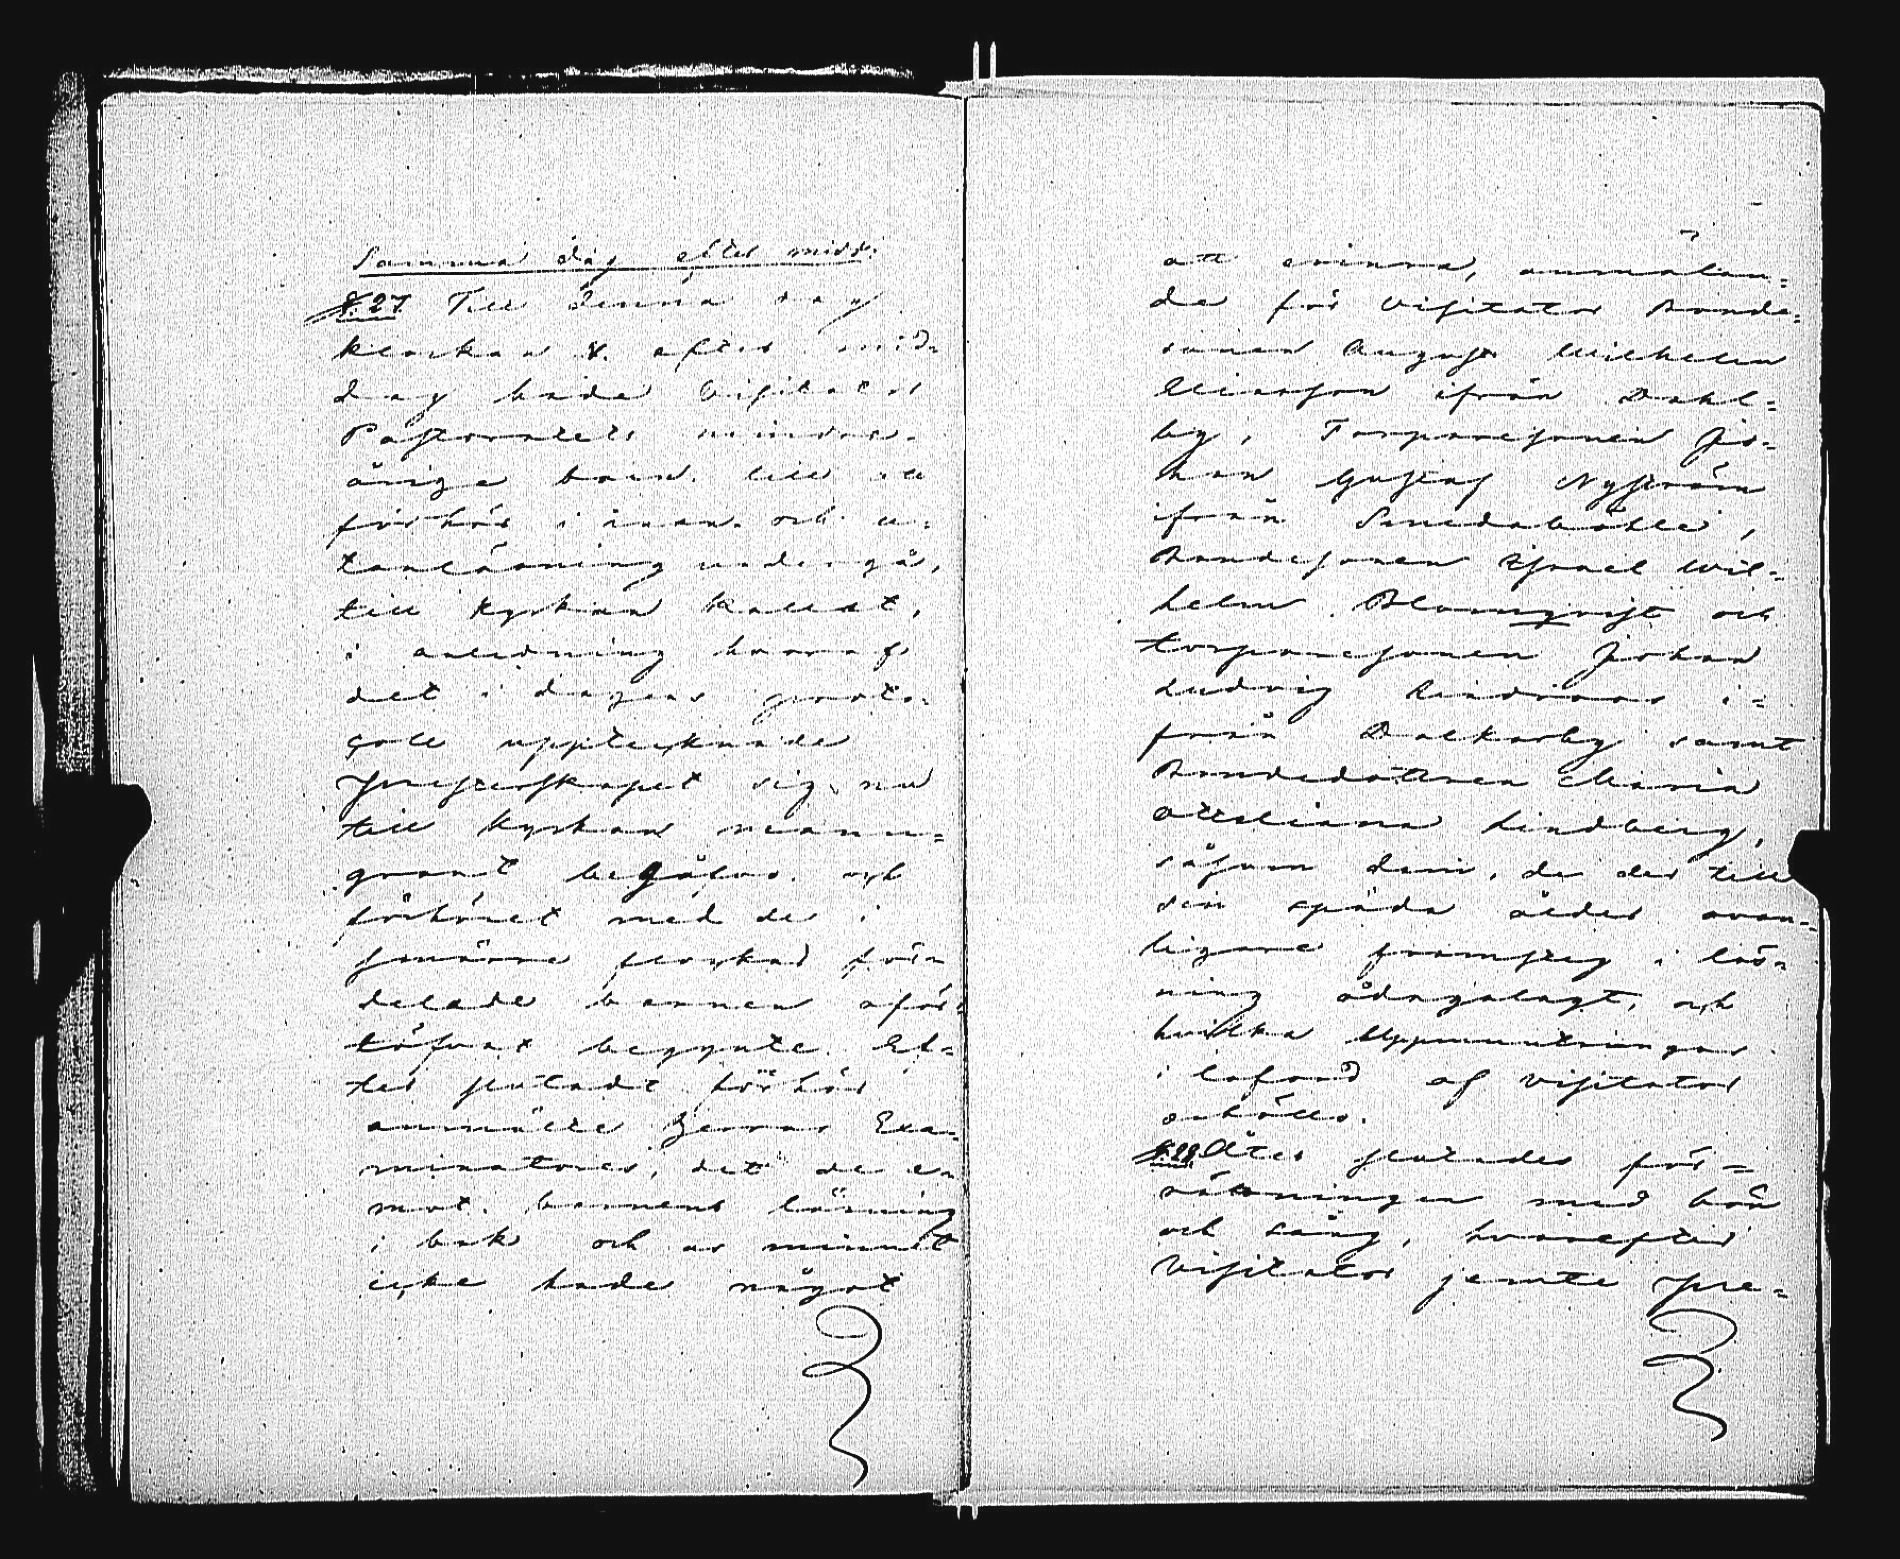 Samma dag efter midd:
§.27. Till denna dag
klockan 4. efter mid-
dag hade Visitator
Pastoratets mindre-
årige barn till att
förhör i innan- och u-
tanläsning undergå,
till kyrkan kallat,
i anledning hvaraf
det i dagens proto-
coll upptecknade
Presterskapet sig nu
till kyrkan mann-
grant begåfvo och
förhöret med de i
smärre flockar för-
delade barnen oför-
töfvat begynte. Ef-
ter slutadt förhör
anmälte Herrar Exa-
minatorer, det de e-
mot barnens läsning
i bok och ur minnet
icke hade något
att erinra, anmälan-
de för Visitator Bonde-
sonen August Wilhelm
Eliasson ifrån Dahl-
by, Torparesonen Jo-
han Gustaf Nyström
ifrån Smedsböhle,
Bondesonen Israel Wil-
helm Blomqvist och
torparesonen Johan
Ludvig Lindroos i-
från Dalkarby samt
Bondedottren Maria
Ottiliana Lindberg,
såsom dem, de der till
sin späda ålder ovan-
ligare framsteg i läs-
ning ådagalagt, och
hvilka Uppmuntringar
i loford af Visitator
erhöllo.
§.28. Åter slutades för-
rättningen med bön
och sång, hvarefter
Visitator jemte Pre-